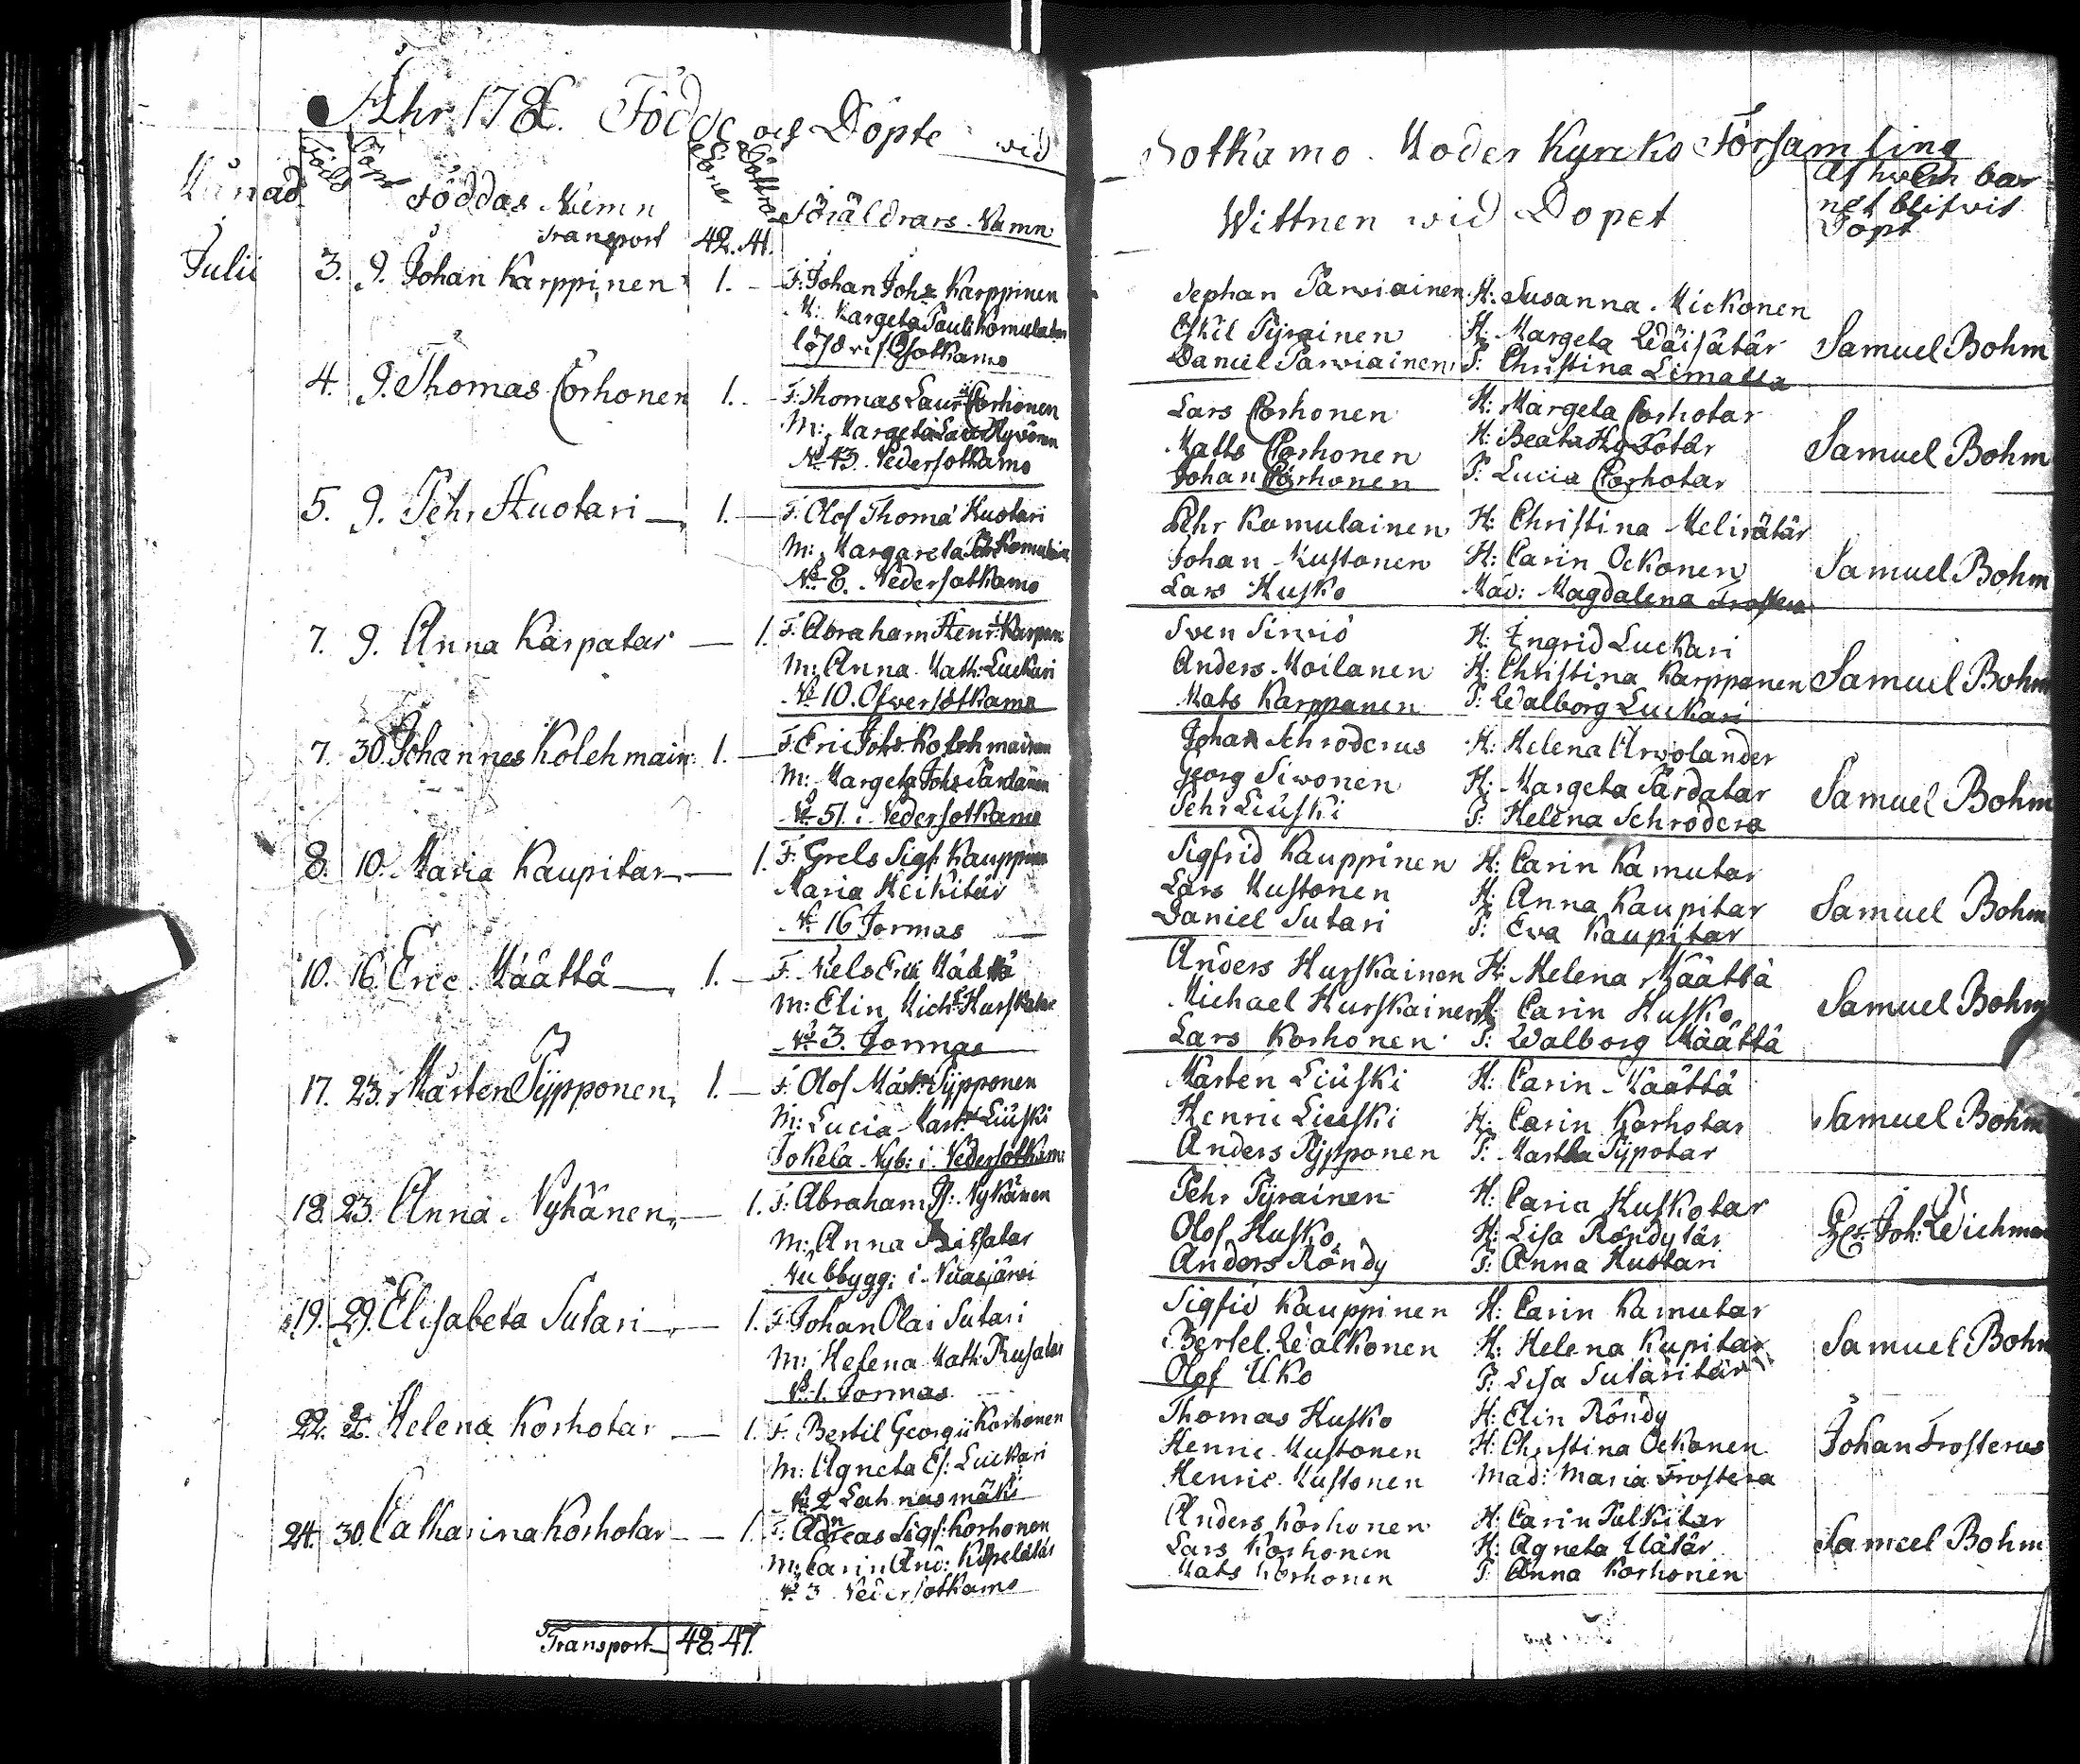 Åhr 178 Födde och Döpte vid
Månad Född Döpt Söner Döttrar
Föddas Nämn Föräldrars Namn
Transport 42. 41.
Julii 3. 9. Johan Karppinen 1. — F: Johan Joh: Karppinen
M: Margeta Pauli Komulatar
Sotkamo
4. 9. Thomas Corhonen 1. — F: Thomas Laur: Corhonen
M: Margeta Hyvönen
No 43. Nedersotkamo
5. 9. Pehr Huotari — 1. — F: Olof Thomæ Huotari
M: Margareta Komulain
No 8. Nedersotkamo
7. 9. Anna Karpatar — 1. F: Abraham Henr: Karpan
M: Anna Math: Luckari
No 10. Ofversotkamo
7. 30. Johannes Kolehmain: 1. — F: Eric Joh: Kolehmainen
M: Margeta Joh: Pardanen
No 51. i Nedersotkamo
8. 10. Maria Kaupitar — 1. F: Grels Sigf: Kauppinen
Maria Heikitär
No 16 Jormas
10. 16. Eric Määttä — 1. — F. Niels Eric Määttä
M: Elin Mich: Hurskatar
No 3. Jormas
17. 23. Mårten Pijpponen, 1. — F: Olof Mårt: Pijpponen
M: Lucia Mart: Liuski
Jokela Nyb: i Nedersotkam:
18. 23. Anna Nykänen, — 1. F: Abraham Nykänen
M: Anna
Nubbygg: i Nuasjärvi
19. 29. Elisabeta Sutari — 1. F: Johan Olai Sutari
M: Helena Math:
No 1. Jormas
22. Helena Korhotar — 1. F: Bertil Georgii Korhonen
M: Agneta Es: Luckari
No 2 Lahnasmäki
24. 30. Catharina Korhotar — 1. F: Andreas Sigf: Korhonen
M: Carin And:
No 3 Nedersotkamo
Transport 48. 47.
Sotkamo Moder Kyrcko Församling
Wittnen wid Dopet Af hwem barnet blifvit Döpt
Stephan Parviainen H: Susanna Mickonen
Eskil Pyrainen H: Margeta Wäisätär Samuel Bohm
Daniel Parviainen P: Christina Limatta
Lars Corhonen H: Margeta Corhotar
Matts Corhonen H: Beata Samuel Bohm
Johan Corhonen P: Lucia Corhotar
Pehr Komulainen H: Christina Melirätär
Johan Mustonen H: Carin Ockonen Samuel Bohm
Lars Husko Mad: Magdalena Frostera
Sven Sirviö H: Ingrid Luckari
Anders Moilanen H: Christina Karppanen Samuel Bohm
Mats Karppanen P: Walborg Luckari
Johan Schroderus H: Helena Arwolander
Georg Siwonen H: Margeta Pardatar Samuel Bohm
Pehr Liuski P: Helena Schrodera
Sigfrid Kauppinen H: Carin Kamutar
Lars Mustonen H: Anna Kaupitar Samuel Bohm
Daniel Sutari P: Eva Kaupitar
Anders Hurskainen H: Helena Määttä
Michael Hurskainen H: Carin Husko Samuel Bohm
Lars Korhonen P: Walborg Määttä
Mårten Liuski H: Carin Määttä
Henric Liuski H: Carin Korhotar Samuel Bohm
Anders Pijpponen P: Martha Pijpotar
Pehr Pyrainen H: Carin Huskotar
Olof Husko H: Lisa Röndytär Joh: Wichman
Anders Röndy P: Anna Huotari
Sigfrid Kauppinen H: Carin Kamutar
Bertel Walkonen H: Helena Kupitar Samuel Bohm
Olof Uko P: Lisa Sutaritär
Thomas Husko H: Elin Röndy
Henric Mustonen H: Christina Ockonen Johan Frosterus
Henric Mustonen Mad: Maria Frostera
Anders Korhonen H: Carin Pulkitar
Lars Korhonen H: Agneta Samuel Bohm
Mats Korhonen P: Anna Korhonen